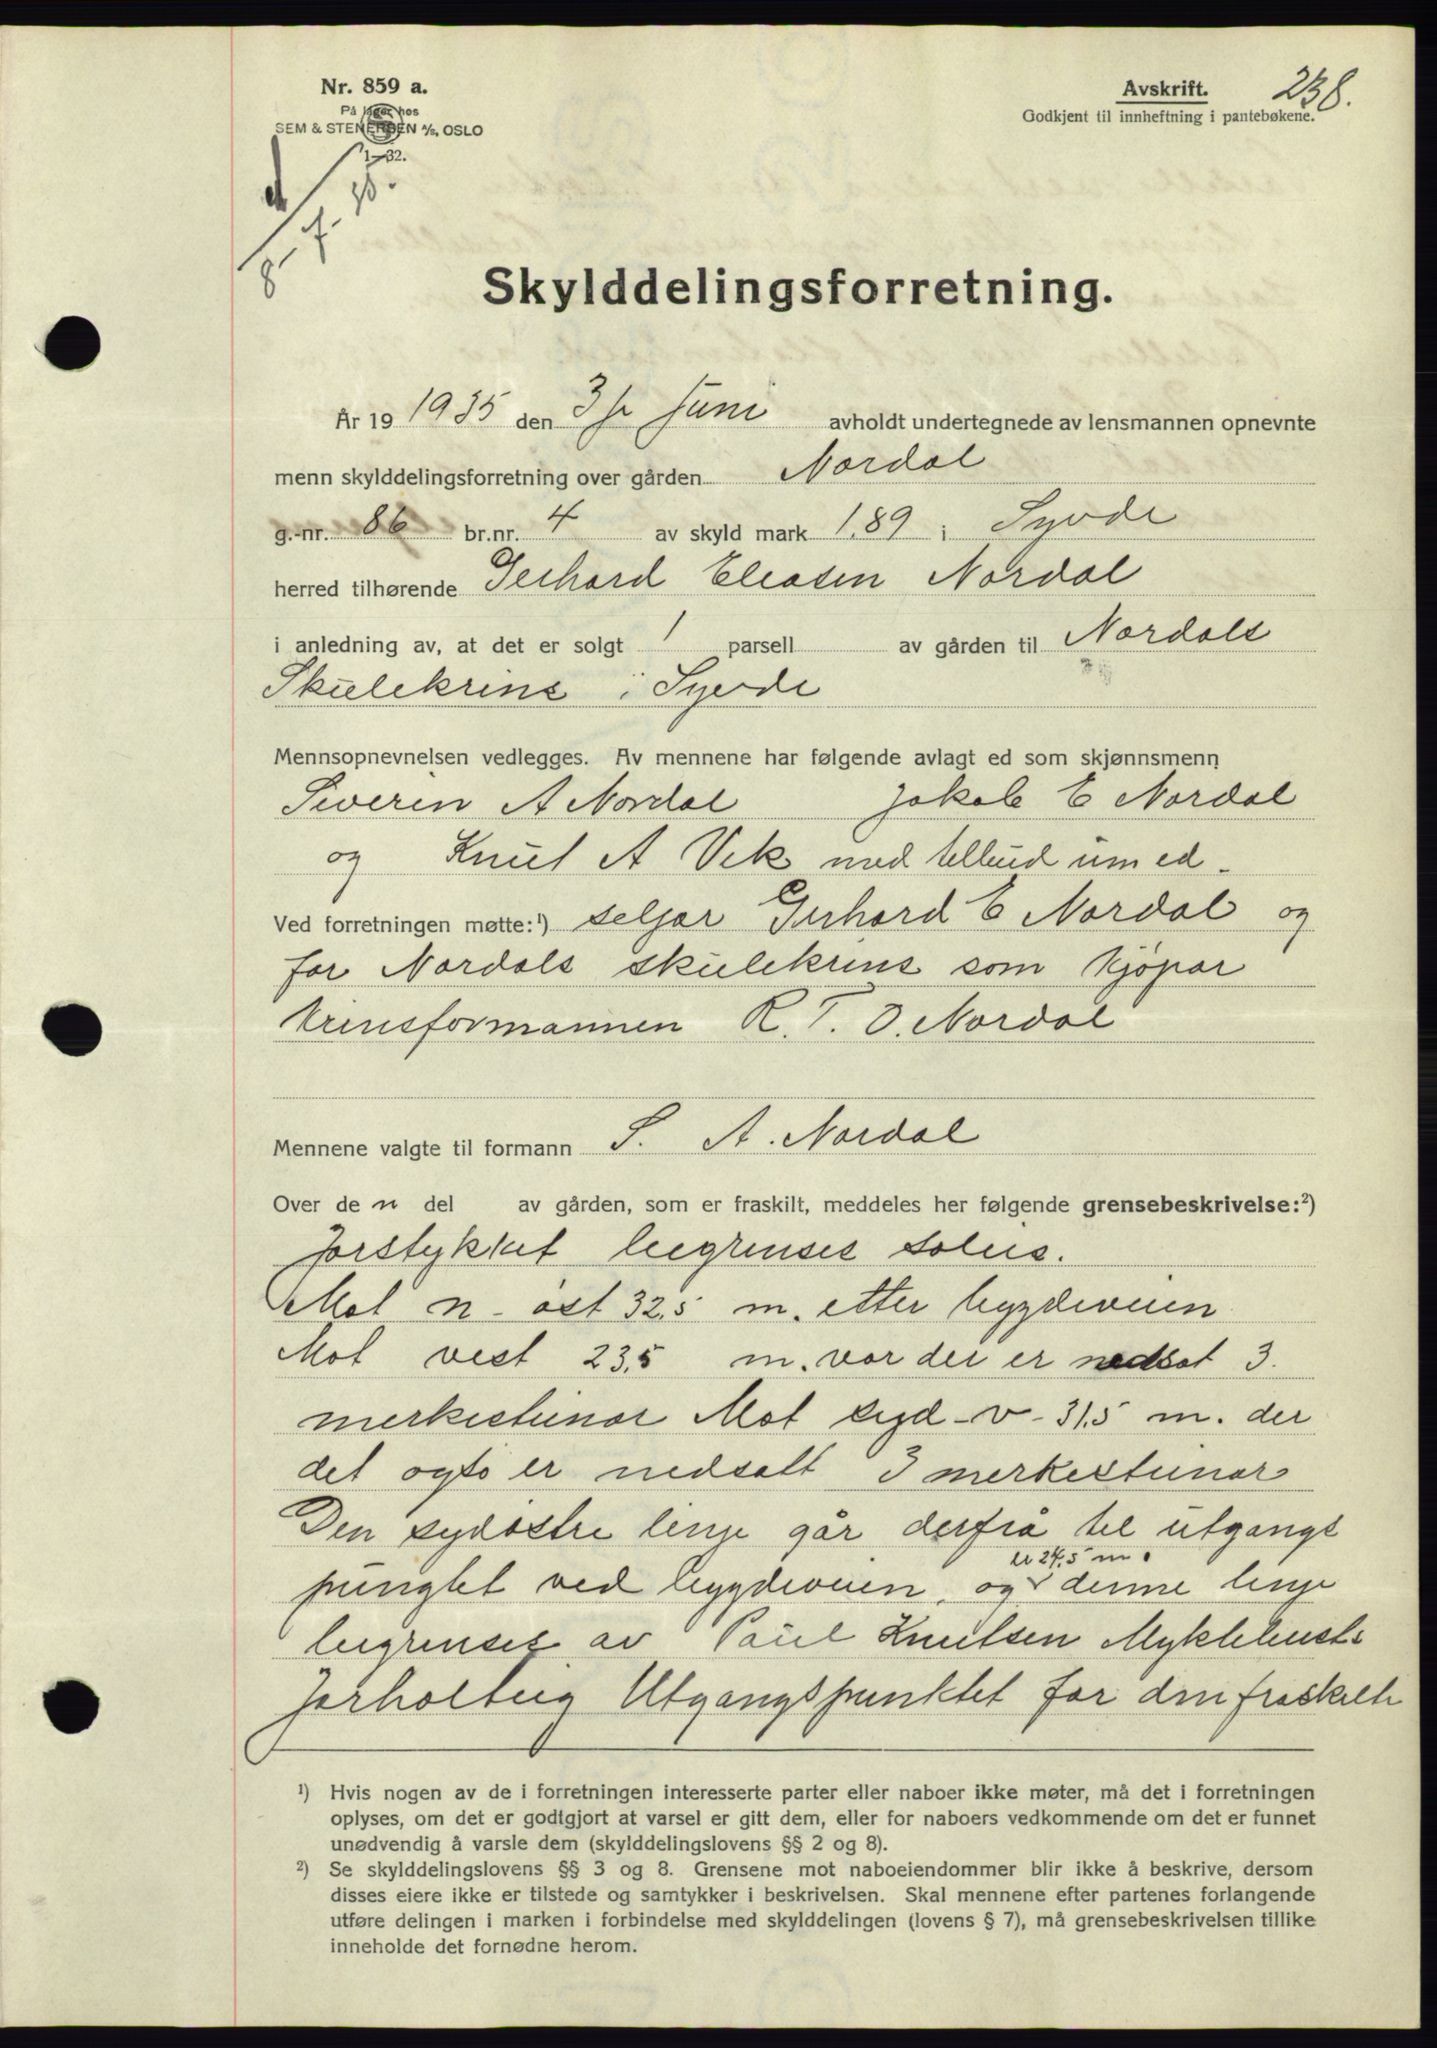 Nr. 859 a.
På lager hos
SEM & STENERSEN A/S, OSLO
1—32.
8-7-35.
Avskrift.
238.
Godkjent til innheftning i pantebøkene.
Skylddelingsforretning.
År 19 1935 den 3je Juni avholdt undertegnede av lensmannen opnevnte
menn skylddelingsforretning over gården Nordal
g.-nr. 86 br.nr. 4 av skyld mark 1.89 i Syvde
herred tilhørende Gerhard Eleasen Nordal
i anledning av, at det er solgt 1 parsell av gården til Nordals
Skulekrins i Syvde
Mennsopnevnelsen vedlegges. Av mennene har følgende avlagt ed som skjønnsmenn
Severin A Nordal Jakob E Nordal
og Knut A Vik med tilbud um ed.
Ved forretningen møtte:¹) seljar Gerhard E Nordal og
for Nordals skulekrins som kjøpar
krinsformannen R. T. O. Nordal
Mennene valgte til formann S. A. Nordal
Over de n del av gården, som er fraskilt, meddeles her følgende grensebeskrivelse:²)
Jorstykket begrenses soleis.
Mot n - øst 32,5 m. etter bygdeveien
Mot vest 23,5 m. vor der er nedsat 3.
merkesteinar Mot syd - v - 31,5 m. der
det også er nedsatt 3 merkesteinar
Den sydøstre linje går derfrå til utgangs
pungtet ved bygdeveien, og denne linje
er 24,5 m.
begrenses av Paul Knutsen Myklebusts
Jorholteig Utgangspunktet for den fraskilte
¹) Hvis nogen av de i forretningen interesserte parter eller naboer ikke møter, må det i forretningen
oplyses, om det er godtgjort at varsel er gitt dem, eller for naboers vedkommende om det er funnet
unødvendig å varsle dem (skylddelingslovens §§ 2 og 8).
²) Se skylddelingslovens §§ 3 og 8. Grensene mot naboeiendommer blir ikke å beskrive, dersom
disses eiere ikke er tilstede og samtykker i beskrivelsen. Skal mennene efter partenes forlangende
utføre delingen i marken i forbindelse med skylddelingen (lovens § 7), må grensebeskrivelsen tillike
inneholde det fornødne herom.